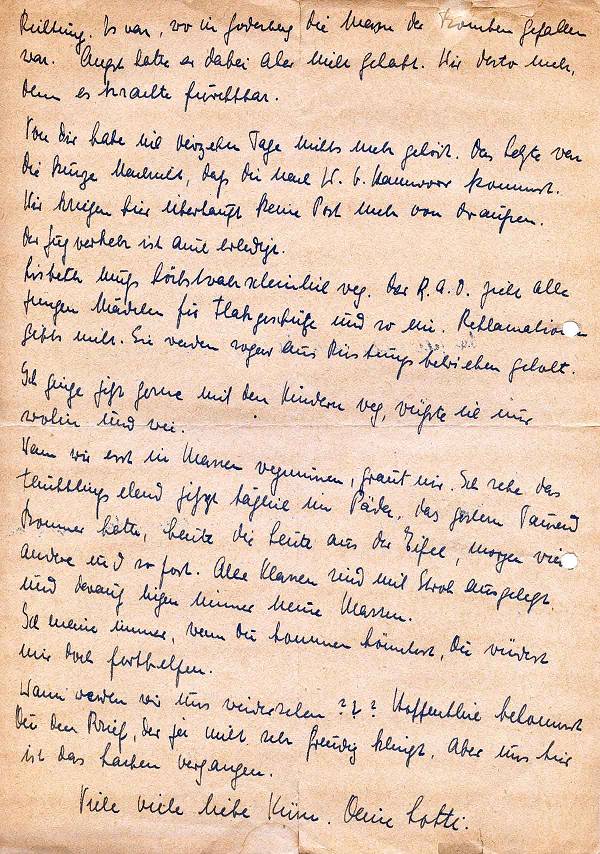 Richtung. Es war, wo in Godesberg die Massen der Bomben gefallen
war. Angst hatte er dabei aber nicht gehabt. Wir desto mehr,
denn es krachte furchtbar.
Von Dir habe ich vierzehn Tage nichts mehr gehört. Das Letzte war
die kurze Nachricht, daß Du nach W. b. Hannover kommst.
Wir kriegen hier überhaupt keine Post mehr von draußen.
Der Zugverkehr ist auch erledigt.
Lisbeth muß höchstwahrscheinlich weg. Der R.A.D. zieht alle
jungen Mädchen für Flakgeschütze und so ein. Reklamationen
gibts nicht. Sie werden sogar aus Rüstungsbetrieben geholt.
Ich ginge jetzt gerne mit den Kindern weg, wüßte ich nur
wohin und wie.
Wenn wir erst in Massen wegmüssen, graut mir. Ich sehe das
Flüchtlingselend jetzt täglich im Päda, das gestern Tausend
Bonner hatte, heute die Leute aus der Eifel, morgen wie
andere und so fort. Alle Klassen sind mit Stroh ausgelegt
und darauf liegen immer neue Massen.
Ich meine immer, wenn Du kommen könntest, Du würdest
mir doch forthelfen.
Wann werden wir uns wiedersehen ??? Hoffentlich bekommst
Du den Brief, der ja nicht sehr freudig klingt. Aber uns hier
ist das Lachen vergangen.
Viele viele liebe Küsse. Deine Lotti.